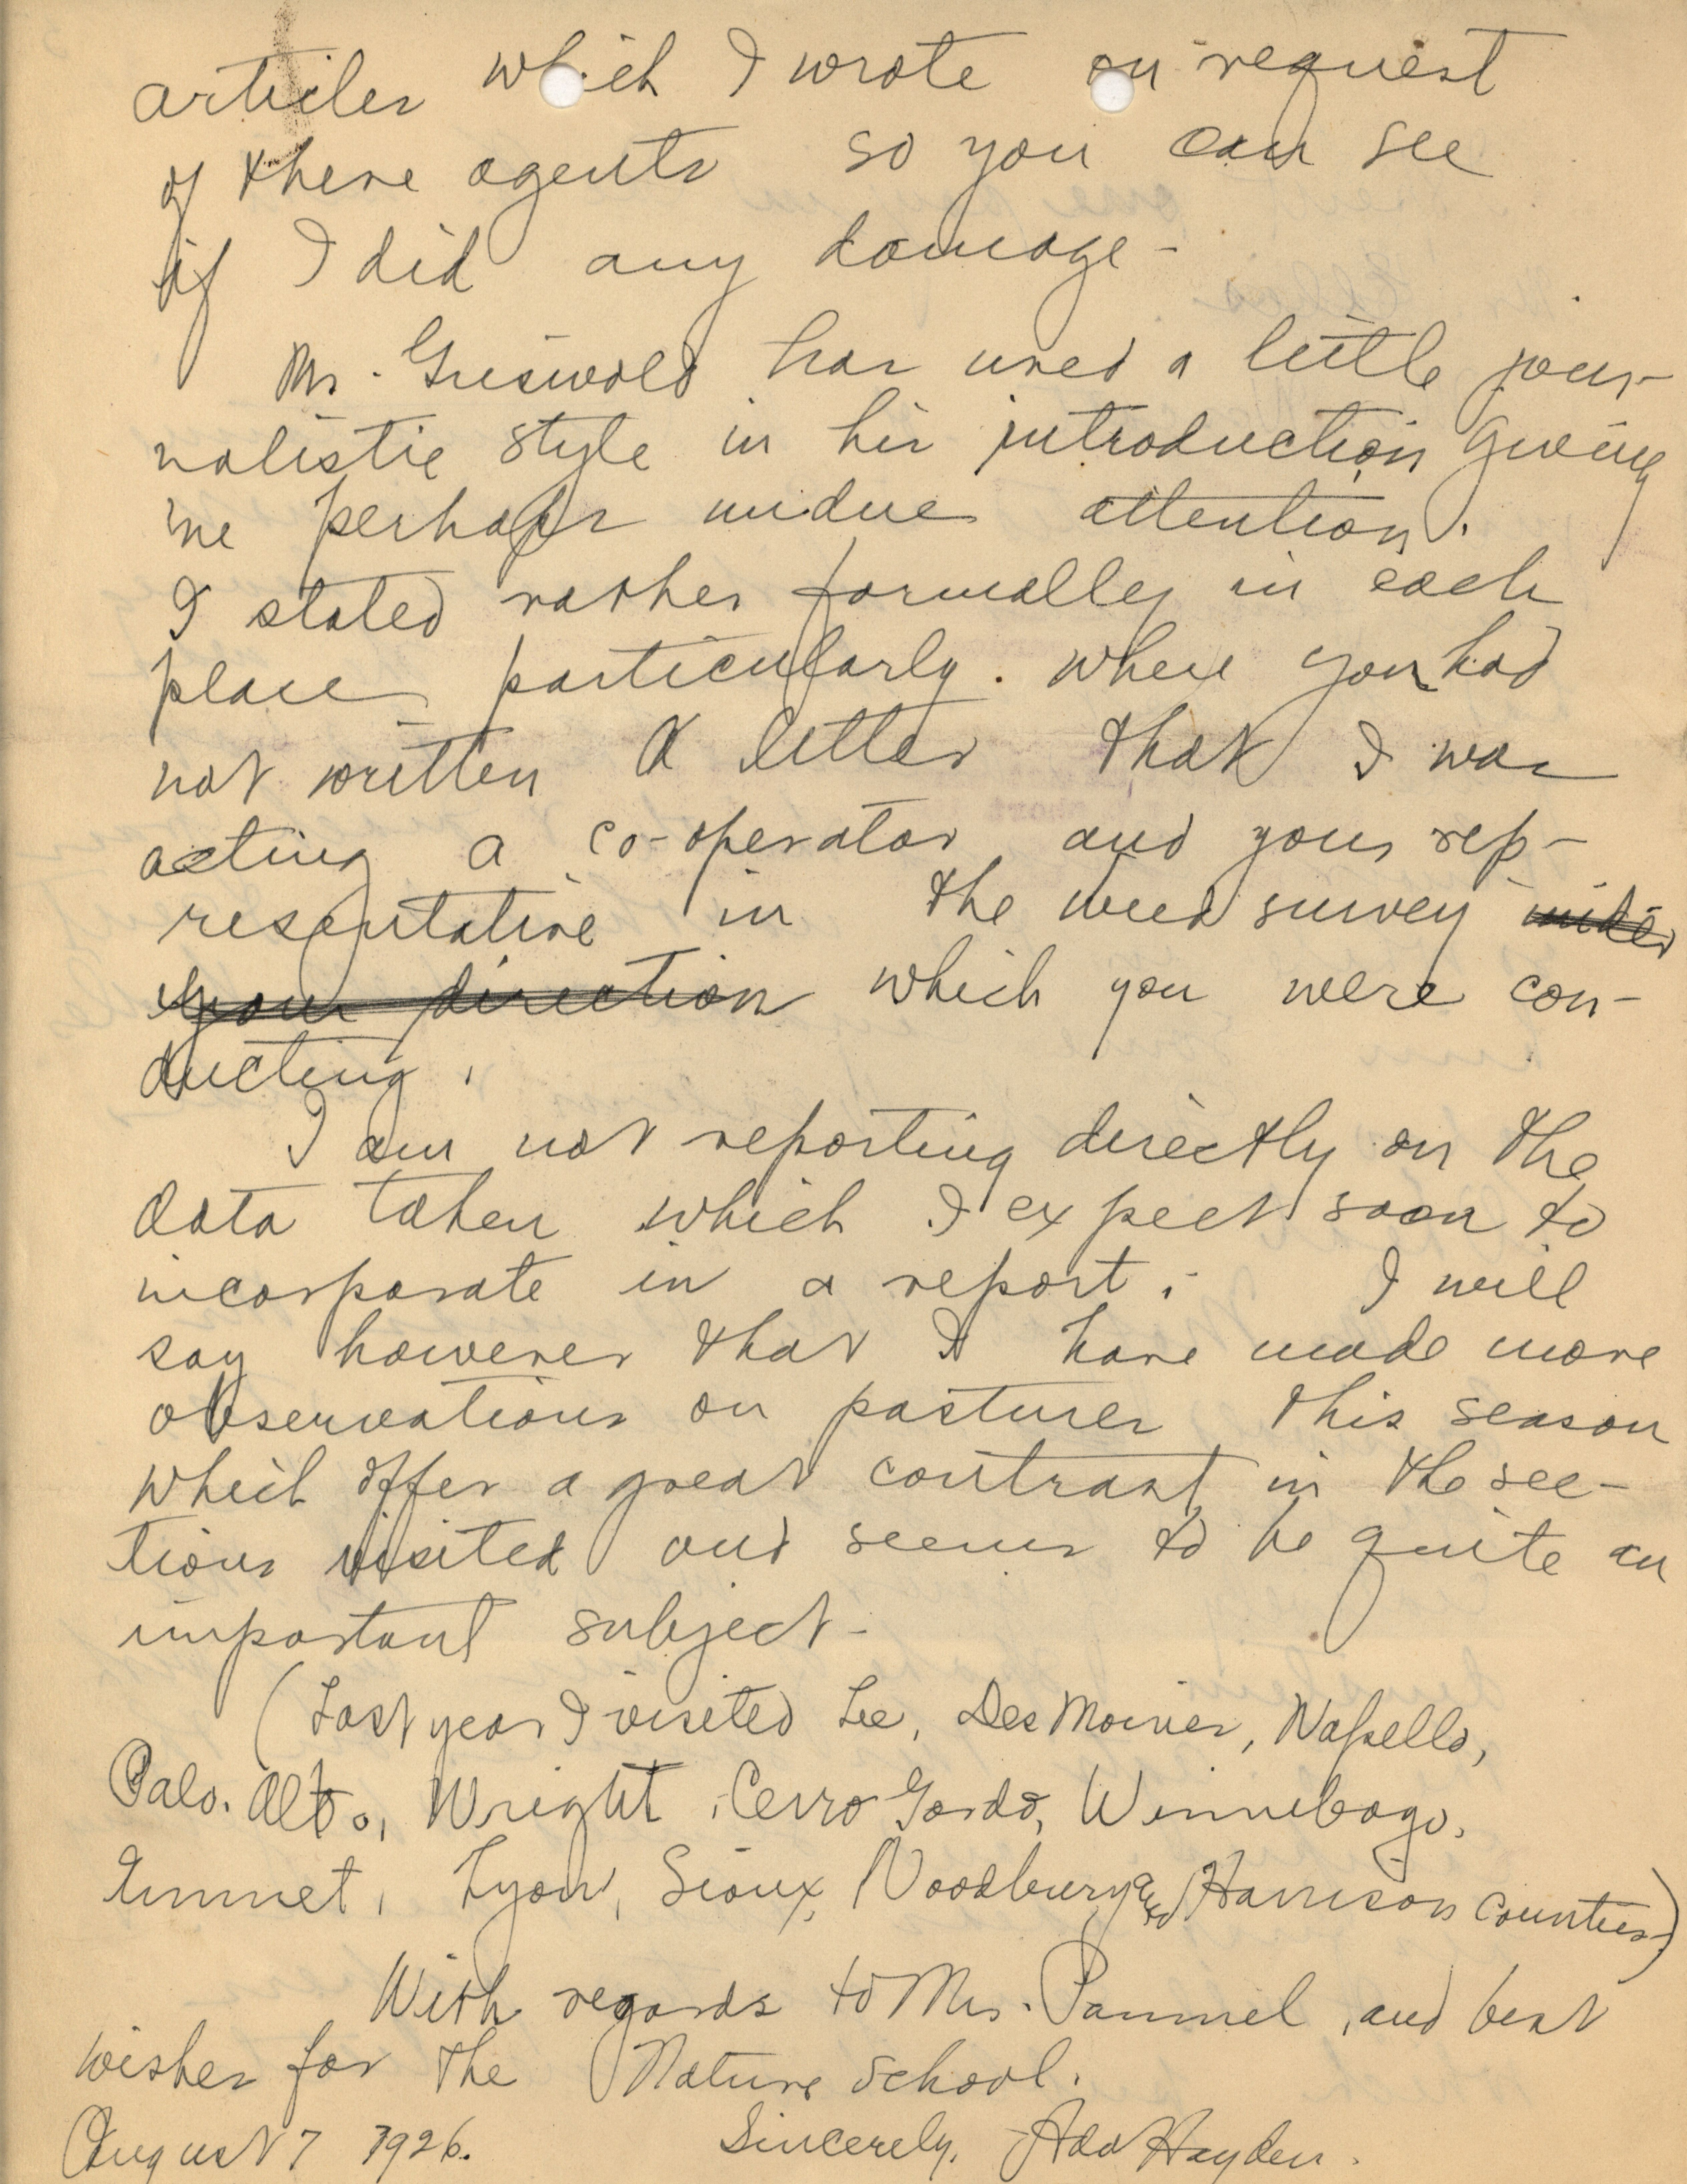 articles which I wrote on request
of these agents so you can see
if I did any damage -
Mr. Griswold has used a little jour-
nalistic style in his introduction giving
me perhaps undue attention.
I stated rather formally in each
place particularly. where you had
not written a letter that I was
acting a co-operator and your rep-
resentative in the weed survey under
your direction which you were con-
ducting.
I am not reporting directly on the
data taken which I expect soon to
incorporate in a report. I will
say however that I have made more
observations on pastures this season
which offer a great contrast in the sec-
tions visited and seems to be quite an
important subject -
(Last year I visited Lee, Des Moines, Wapello,
Palo. Alto, Wright, Cerro Gordo, Winnebago,
Emmet, Lyon, Sioux, Woodbury and Harrison Counties)
With regards to Mrs. Pammel, and best
wishes for the Nature School.
August 7 1926. Sincerely, Ada Hayden.